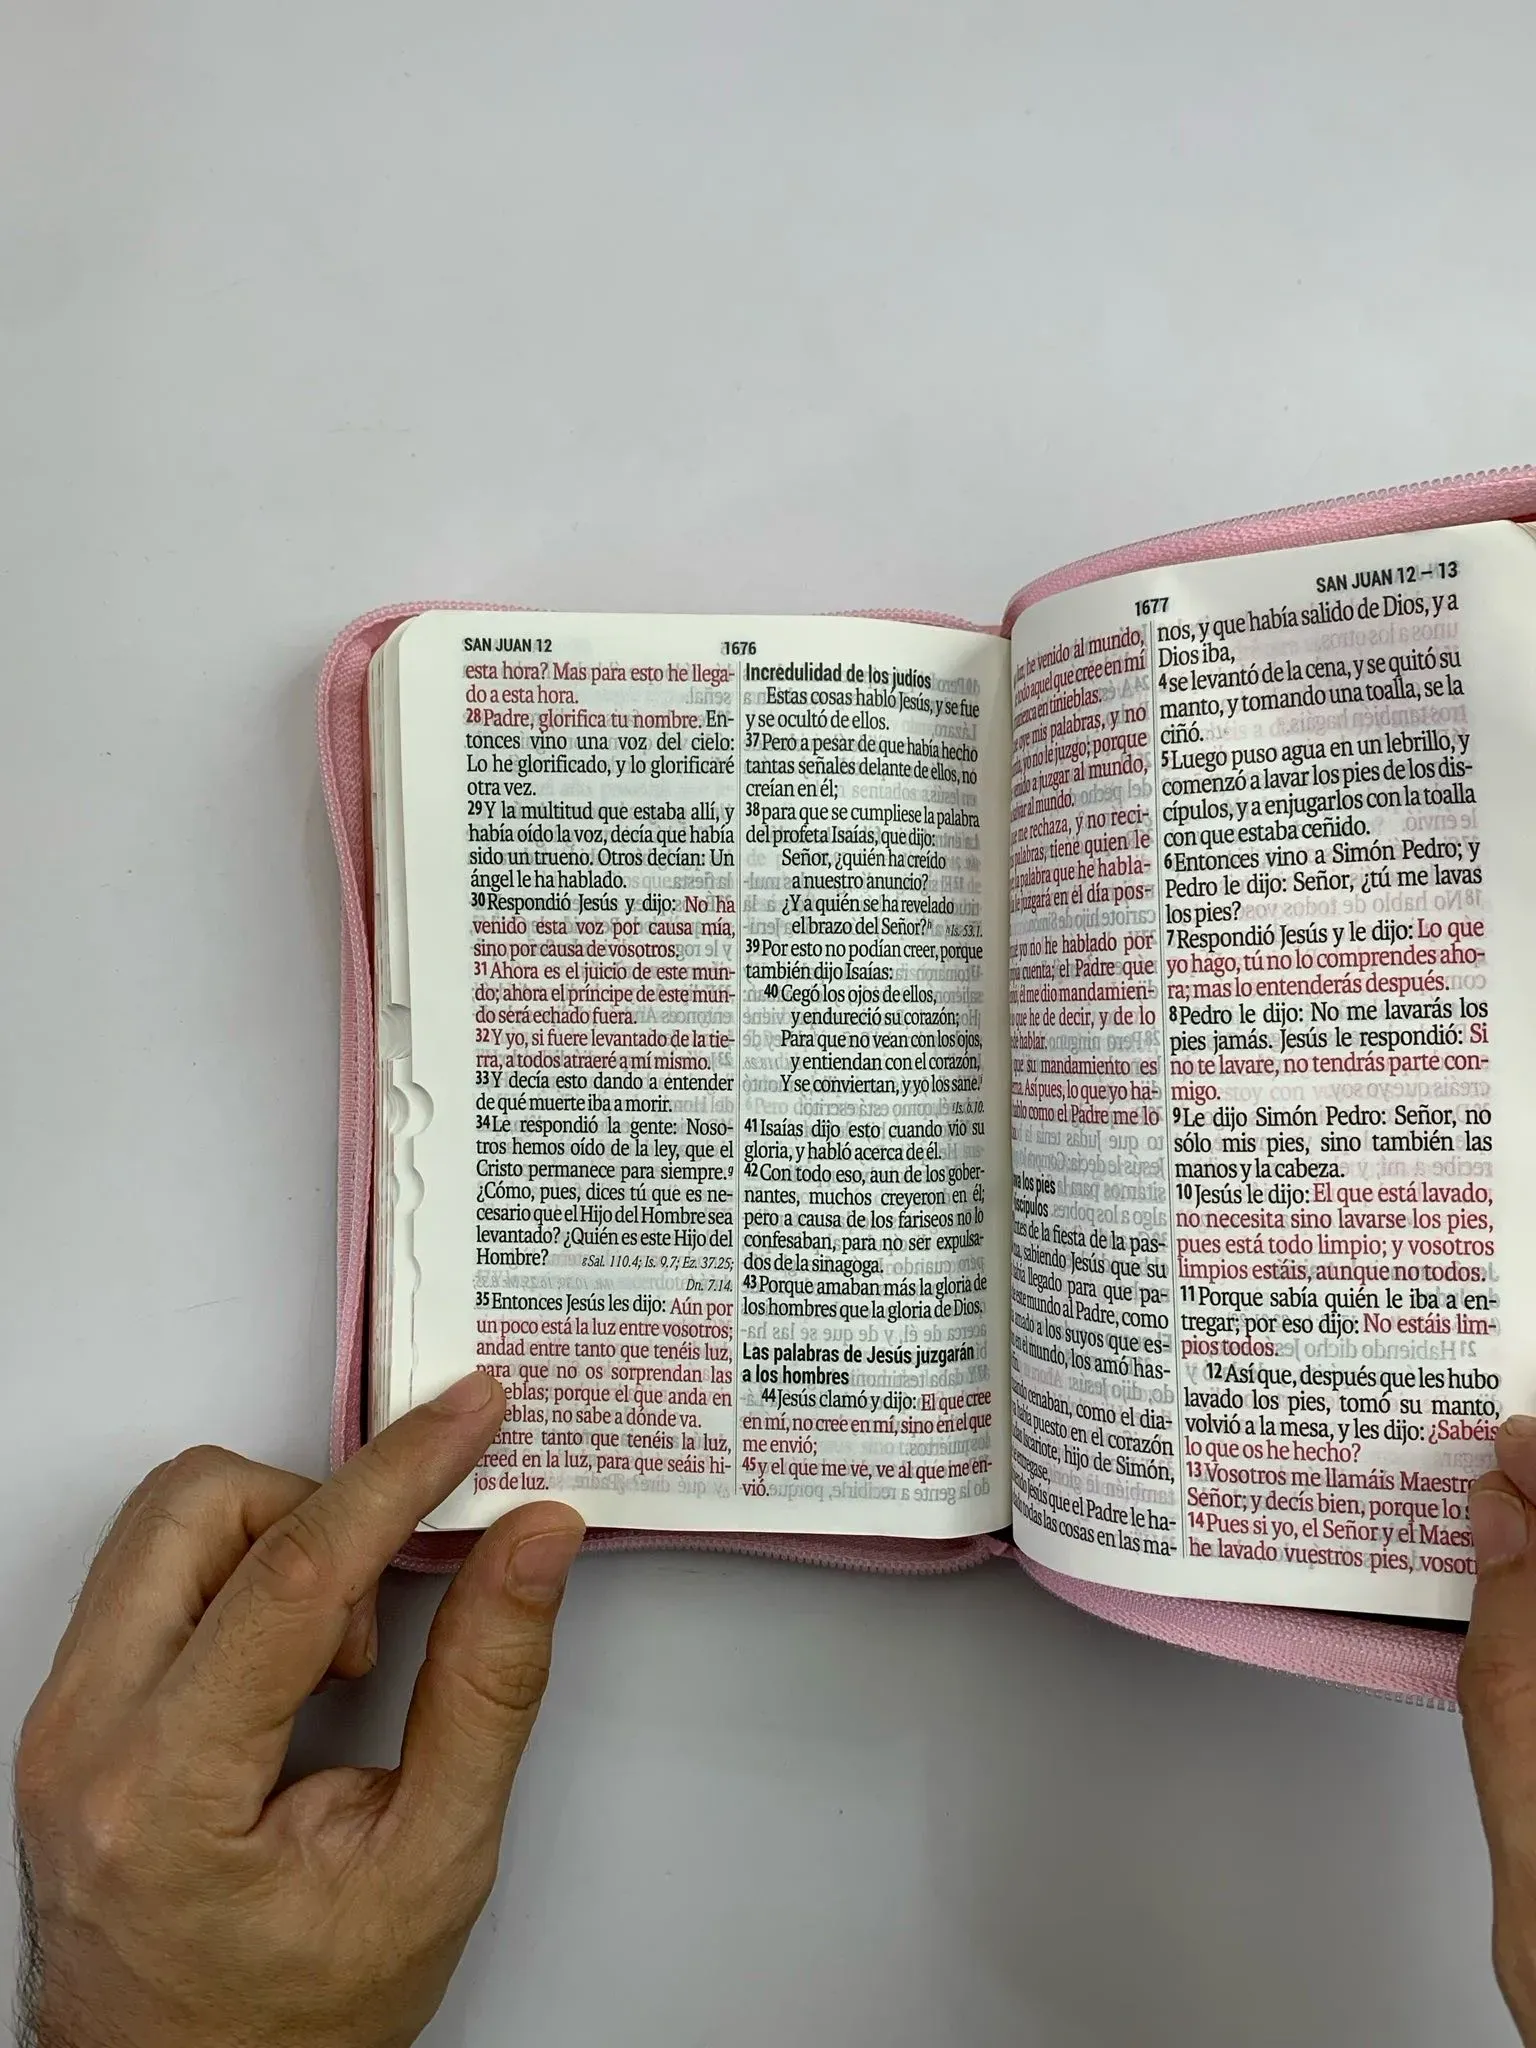 SAN JUAN 12
1676
esta hora? Mas para esto he llega-
do a esta hora.
28 Padre, glorifica tu nombre. En-
tonces vino una voz del cielo:
Lo he glorificado, y lo glorificaré
otra vez.
29 Y la multitud que estaba allí, y
había oído la voz, decía que había
sido un trueno. Otros decían: Un
ángel le ha hablado.
30 Respondió Jesús y dijo: No ha
venido esta voz por causa mía,
sino por causa de vosotros.
31 Ahora es el juicio de este mun-
do; ahora el príncipe de este mun-
do será echado fuera.
32 Y yo, si fuere levantado de la tie-
rra, a todos atraeré a mí mismo.
33 Y decía esto dando a entender
de qué muerte iba a morir.
34 Le respondió la gente: Noso-
tros hemos oído de la ley, que el
Cristo permanece para siempre.g
¿Cómo, pues, dices tú que es ne-
cesario que el Hijo del Hombre sea
levantado? ¿Quién es este Hijo del
Hombre? g Sal. 110.4; Is. 9.7; Ez. 37.25;
Dn. 7.14.
35 Entonces Jesús les dijo: Aún por
un poco está la luz entre vosotros;
andad entre tanto que tenéis luz,
para que no os sorprendan las
eblas; porque el que anda en
eblas, no sabe a dónde va.
Entre tanto que tenéis la luz,
creed en la luz, para que seáis hi-
jos de luz.
Incredulidad de los judíos
Estas cosas habló Jesús, y se fue
y se ocultó de ellos.
37 Pero a pesar de que había hecho
tantas señales delante de ellos, no
creían en él;
38 para que se cumpliese la palabra
del profeta Isaías, que dijo:
Señor, ¿quién ha creído
a nuestro anuncio?
¿Y a quién se ha revelado
el brazo del Señor?h h Is. 53.1.
39 Por esto no podían creer, porque
también dijo Isaías:
40 Cegó los ojos de ellos,
y endureció su corazón;
Para que no vean con los ojos,
y entiendan con el corazón,
Y se conviertan, y yo los sane.i
i Is. 6.10.
41 Isaías dijo esto cuando vio su
gloria, y habló acerca de él.
42 Con todo eso, aun de los gober-
nantes, muchos creyeron en él;
pero a causa de los fariseos no lo
confesaban, para no ser expulsa-
dos de la sinagoga.
43 Porque amaban más la gloria de
los hombres que la gloria de Dios.
Las palabras de Jesús juzgarán
a los hombres
44 Jesús clamó y dijo: El que cree
en mí, no cree en mí, sino en el que
me envió;
45 y el que me ve, ve al que me en-
vió.
1677
SAN JUAN 12 – 13
he venido al mundo,
todo aquel que cree en mí
en tinieblas.
oye mis palabras, y no
yo no le juzgo; porque
a juzgar al mundo,
al mundo.
me rechaza, y no reci-
palabras, tiene quien le
palabra que he habla-
le juzgará en el día pos-
yo no he hablado por
cuenta; el Padre que
él me dio mandamien-
que he de decir, y de lo
hablar.
que su mandamiento es
Así pues, lo que yo ha-
como el Padre me lo
los pies
de la fiesta de la pas-
sabiendo Jesús que su
llegado para que pa-
este mundo al Padre, como
amado a los suyos que es-
en el mundo, los amó has-
cenaban, como el dia-
puesto en el corazón
Iscariote, hijo de Simón,
Jesús que el Padre le ha-
todas las cosas en las ma-
nos, y que había salido de Dios, y a
Dios iba,
4 se levantó de la cena, y se quitó su
manto, y tomando una toalla, se la
ciñó.
5 Luego puso agua en un lebrillo, y
comenzó a lavar los pies de los dis-
cípulos, y a enjugarlos con la toalla
con que estaba ceñido.
6 Entonces vino a Simón Pedro; y
Pedro le dijo: Señor, ¿tú me lavas
los pies?
7 Respondió Jesús y le dijo: Lo que
yo hago, tú no lo comprendes aho-
ra; mas lo entenderás después.
8 Pedro le dijo: No me lavarás los
pies jamás. Jesús le respondió: Si
no te lavare, no tendrás parte con-
migo.
9 Le dijo Simón Pedro: Señor, no
sólo mis pies, sino también las
manos y la cabeza.
10 Jesús le dijo: El que está lavado,
no necesita sino lavarse los pies,
pues está todo limpio; y vosotros
limpios estáis, aunque no todos.
11 Porque sabía quién le iba a en-
tregar; por eso dijo: No estáis lim-
pios todos.
12 Así que, después que les hubo
lavado los pies, tomó su manto,
volvió a la mesa, y les dijo: ¿Sabéis
lo que os he hecho?
13 Vosotros me llamáis Maestro
Señor; y decís bien, porque lo
14 Pues si yo, el Señor y el Maes
he lavado vuestros pies, vosot